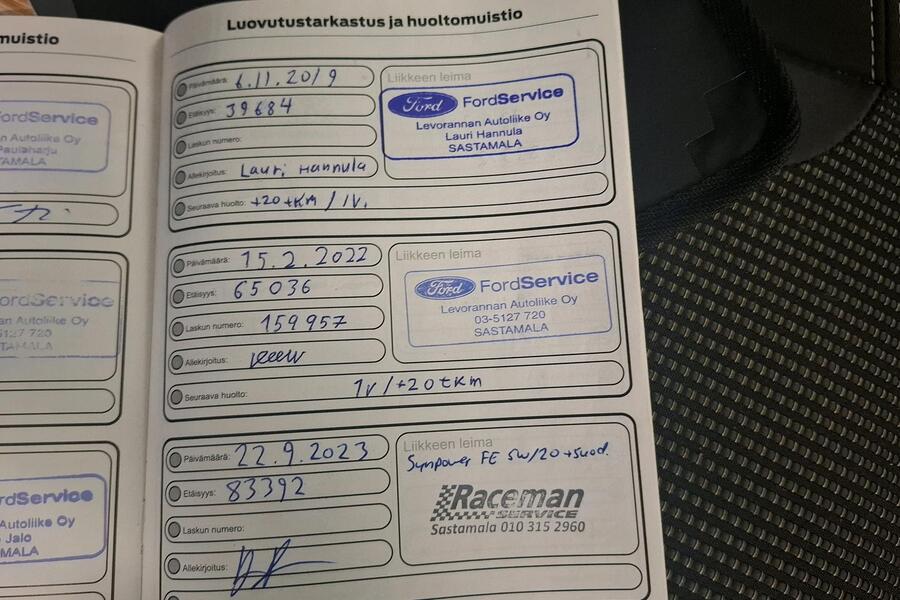 muistio
FordService
n Autoliike Oy
Paulaharju
TAMALA
ordService
an Autoliike Oy
5127 720
TAMALA
rdService
Autoliike Oy
Jalo
MALA
Luovutustarkastus ja huoltomuistio
Päivämäärä: 6.11.2019
Etäisyys: 39684
Laskun numero:
Allekirjoitus: Lauri Hannula
Seuraava huolto: +20 tKm / 1v.
Liikkeen leima
Ford FordService
Levorannan Autoliike Oy
Lauri Hannula
SASTAMALA
Päivämäärä: 15.2.2022
Etäisyys: 65036
Laskun numero: 159957
Allekirjoitus:
Seuraava huolto: 1v / +20 tkm
Liikkeen leima
Ford FordService
Levorannan Autoliike Oy
03-5127 720
SASTAMALA
Päivämäärä: 22.9.2023
Etäisyys: 83392
Laskun numero:
Allekirjoitus:
Liikkeen leima
Synpower FE 5W/20 + suod.
Raceman
SERVICE
Sastamala 010 315 2960